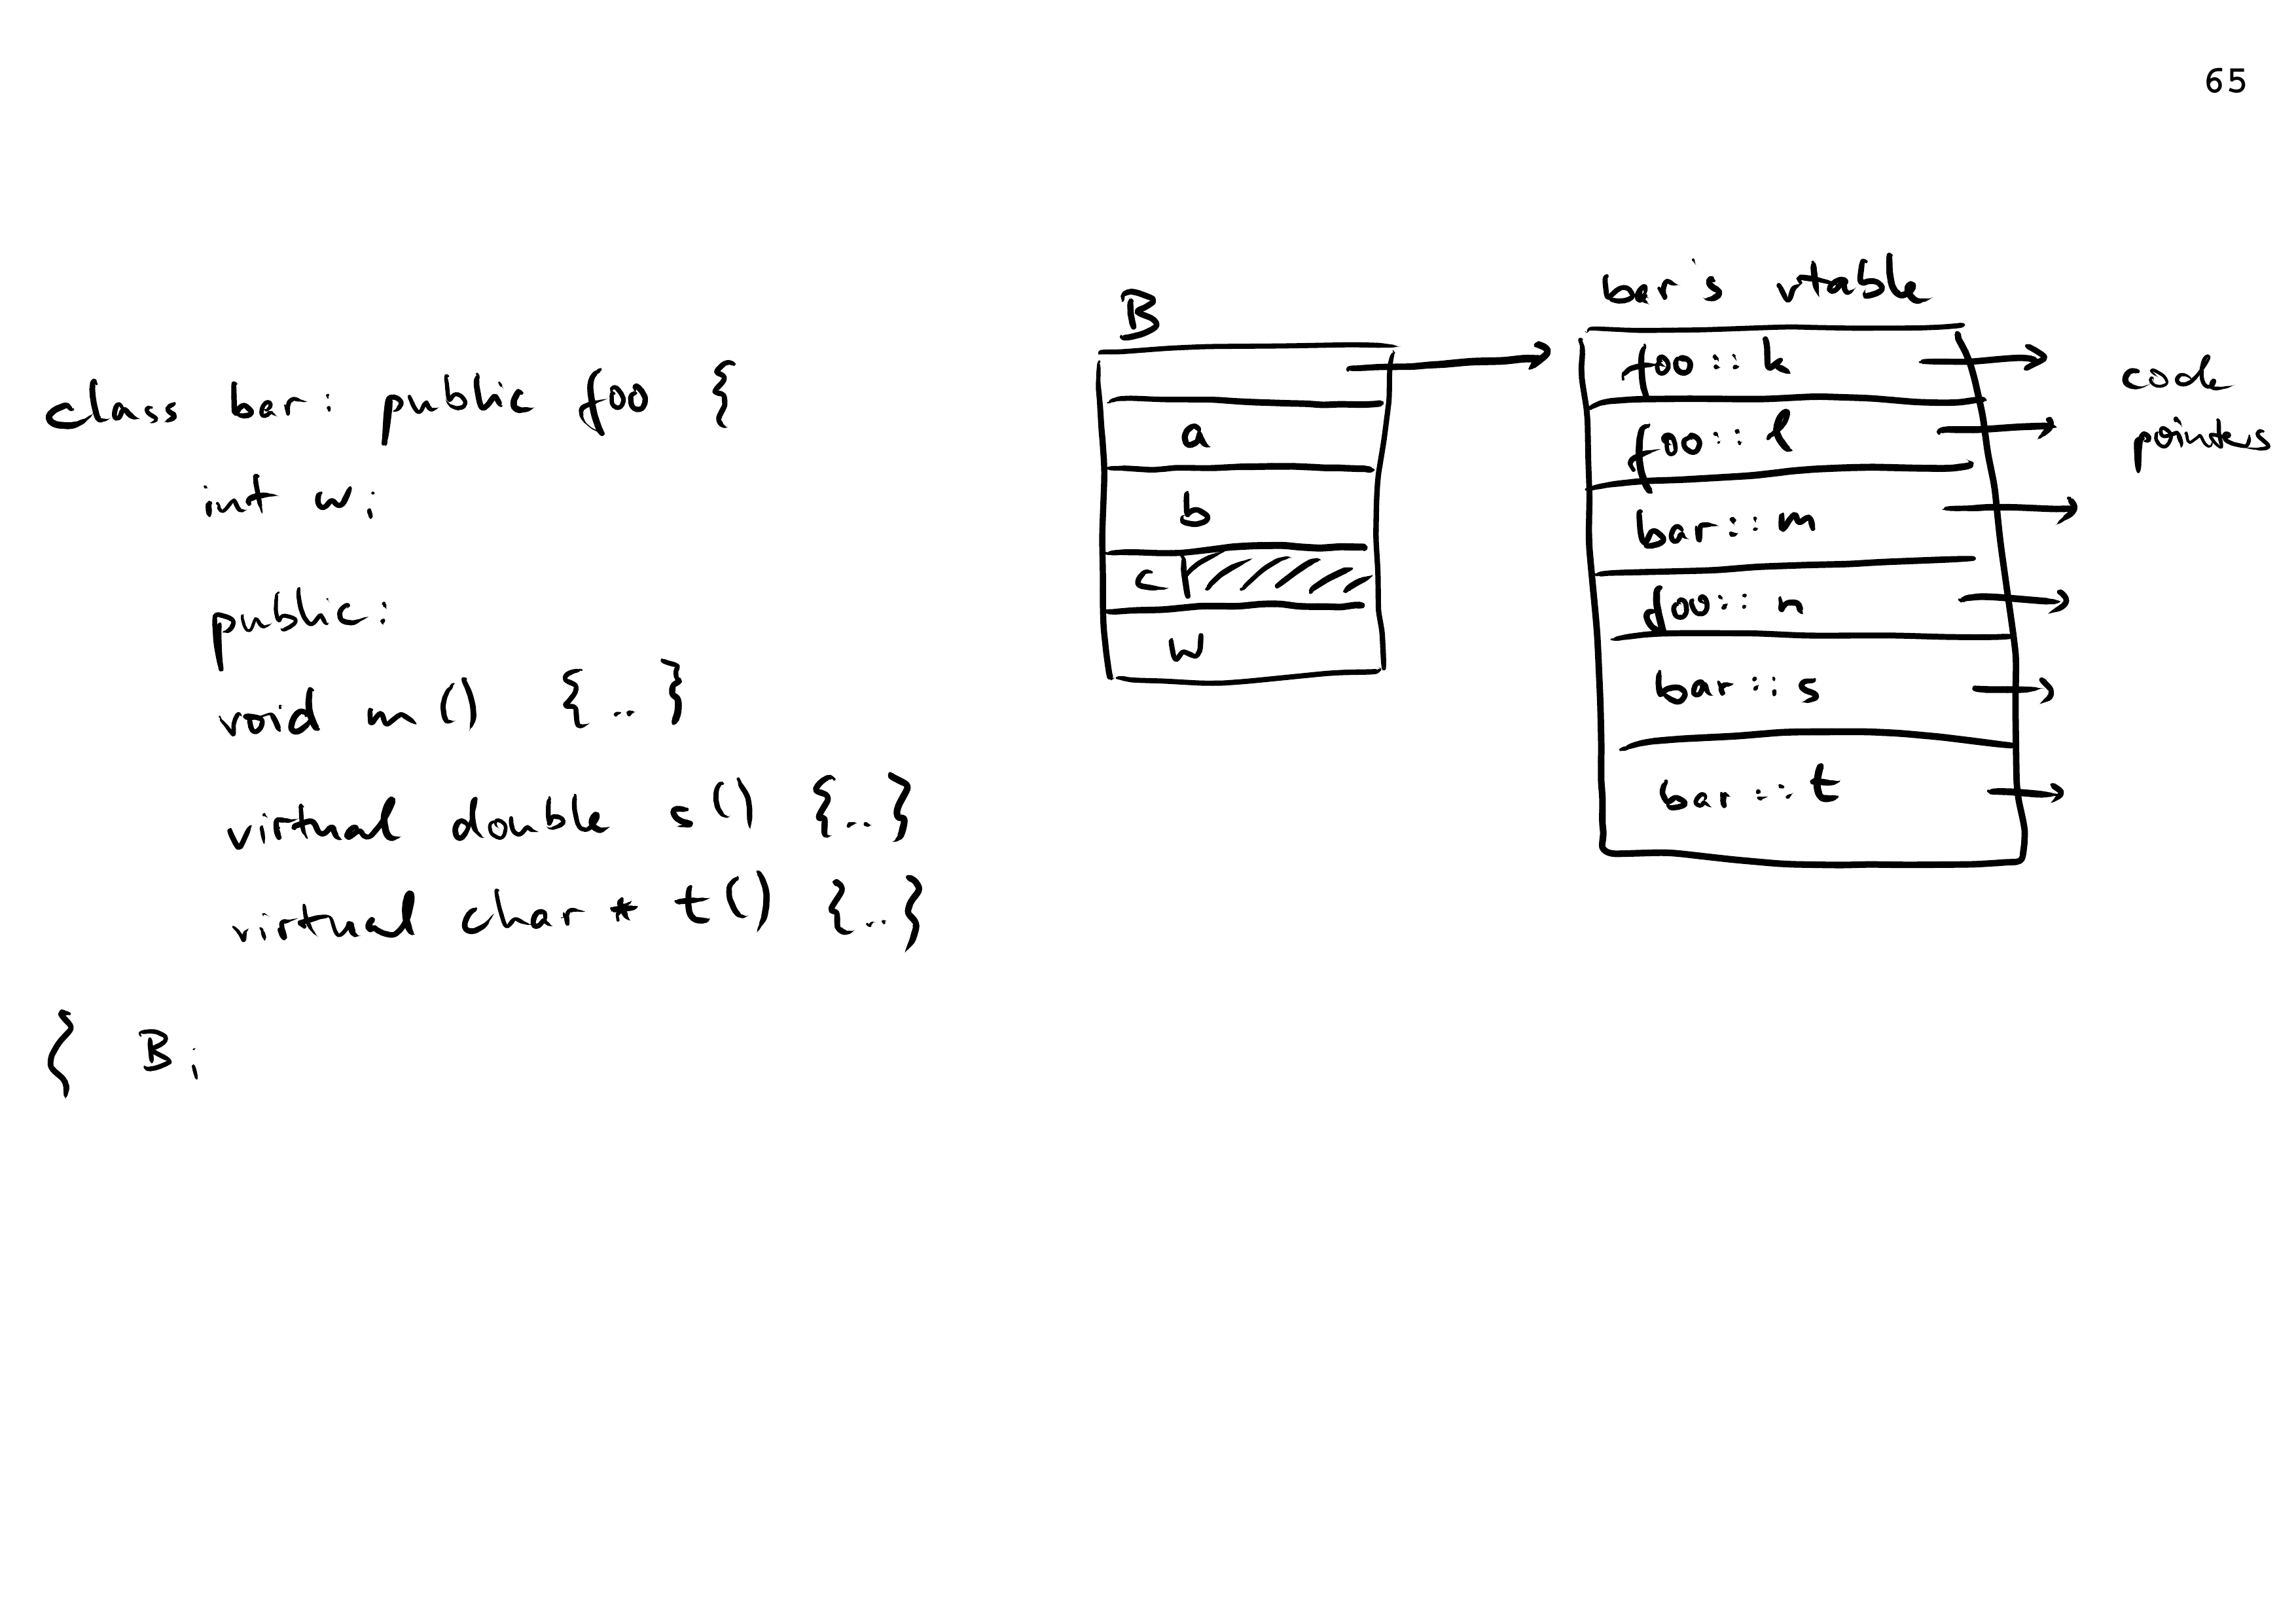 65
class bar: public foo {
int w;
public:
void m() {..}
virtual double s() {..}
virtual char * t() {..}
{ B;
B
a
b
c
w
bar's vtable
foo::k
foo::l
bar::m
foo::n
bar::s
bar::t
code
pointers